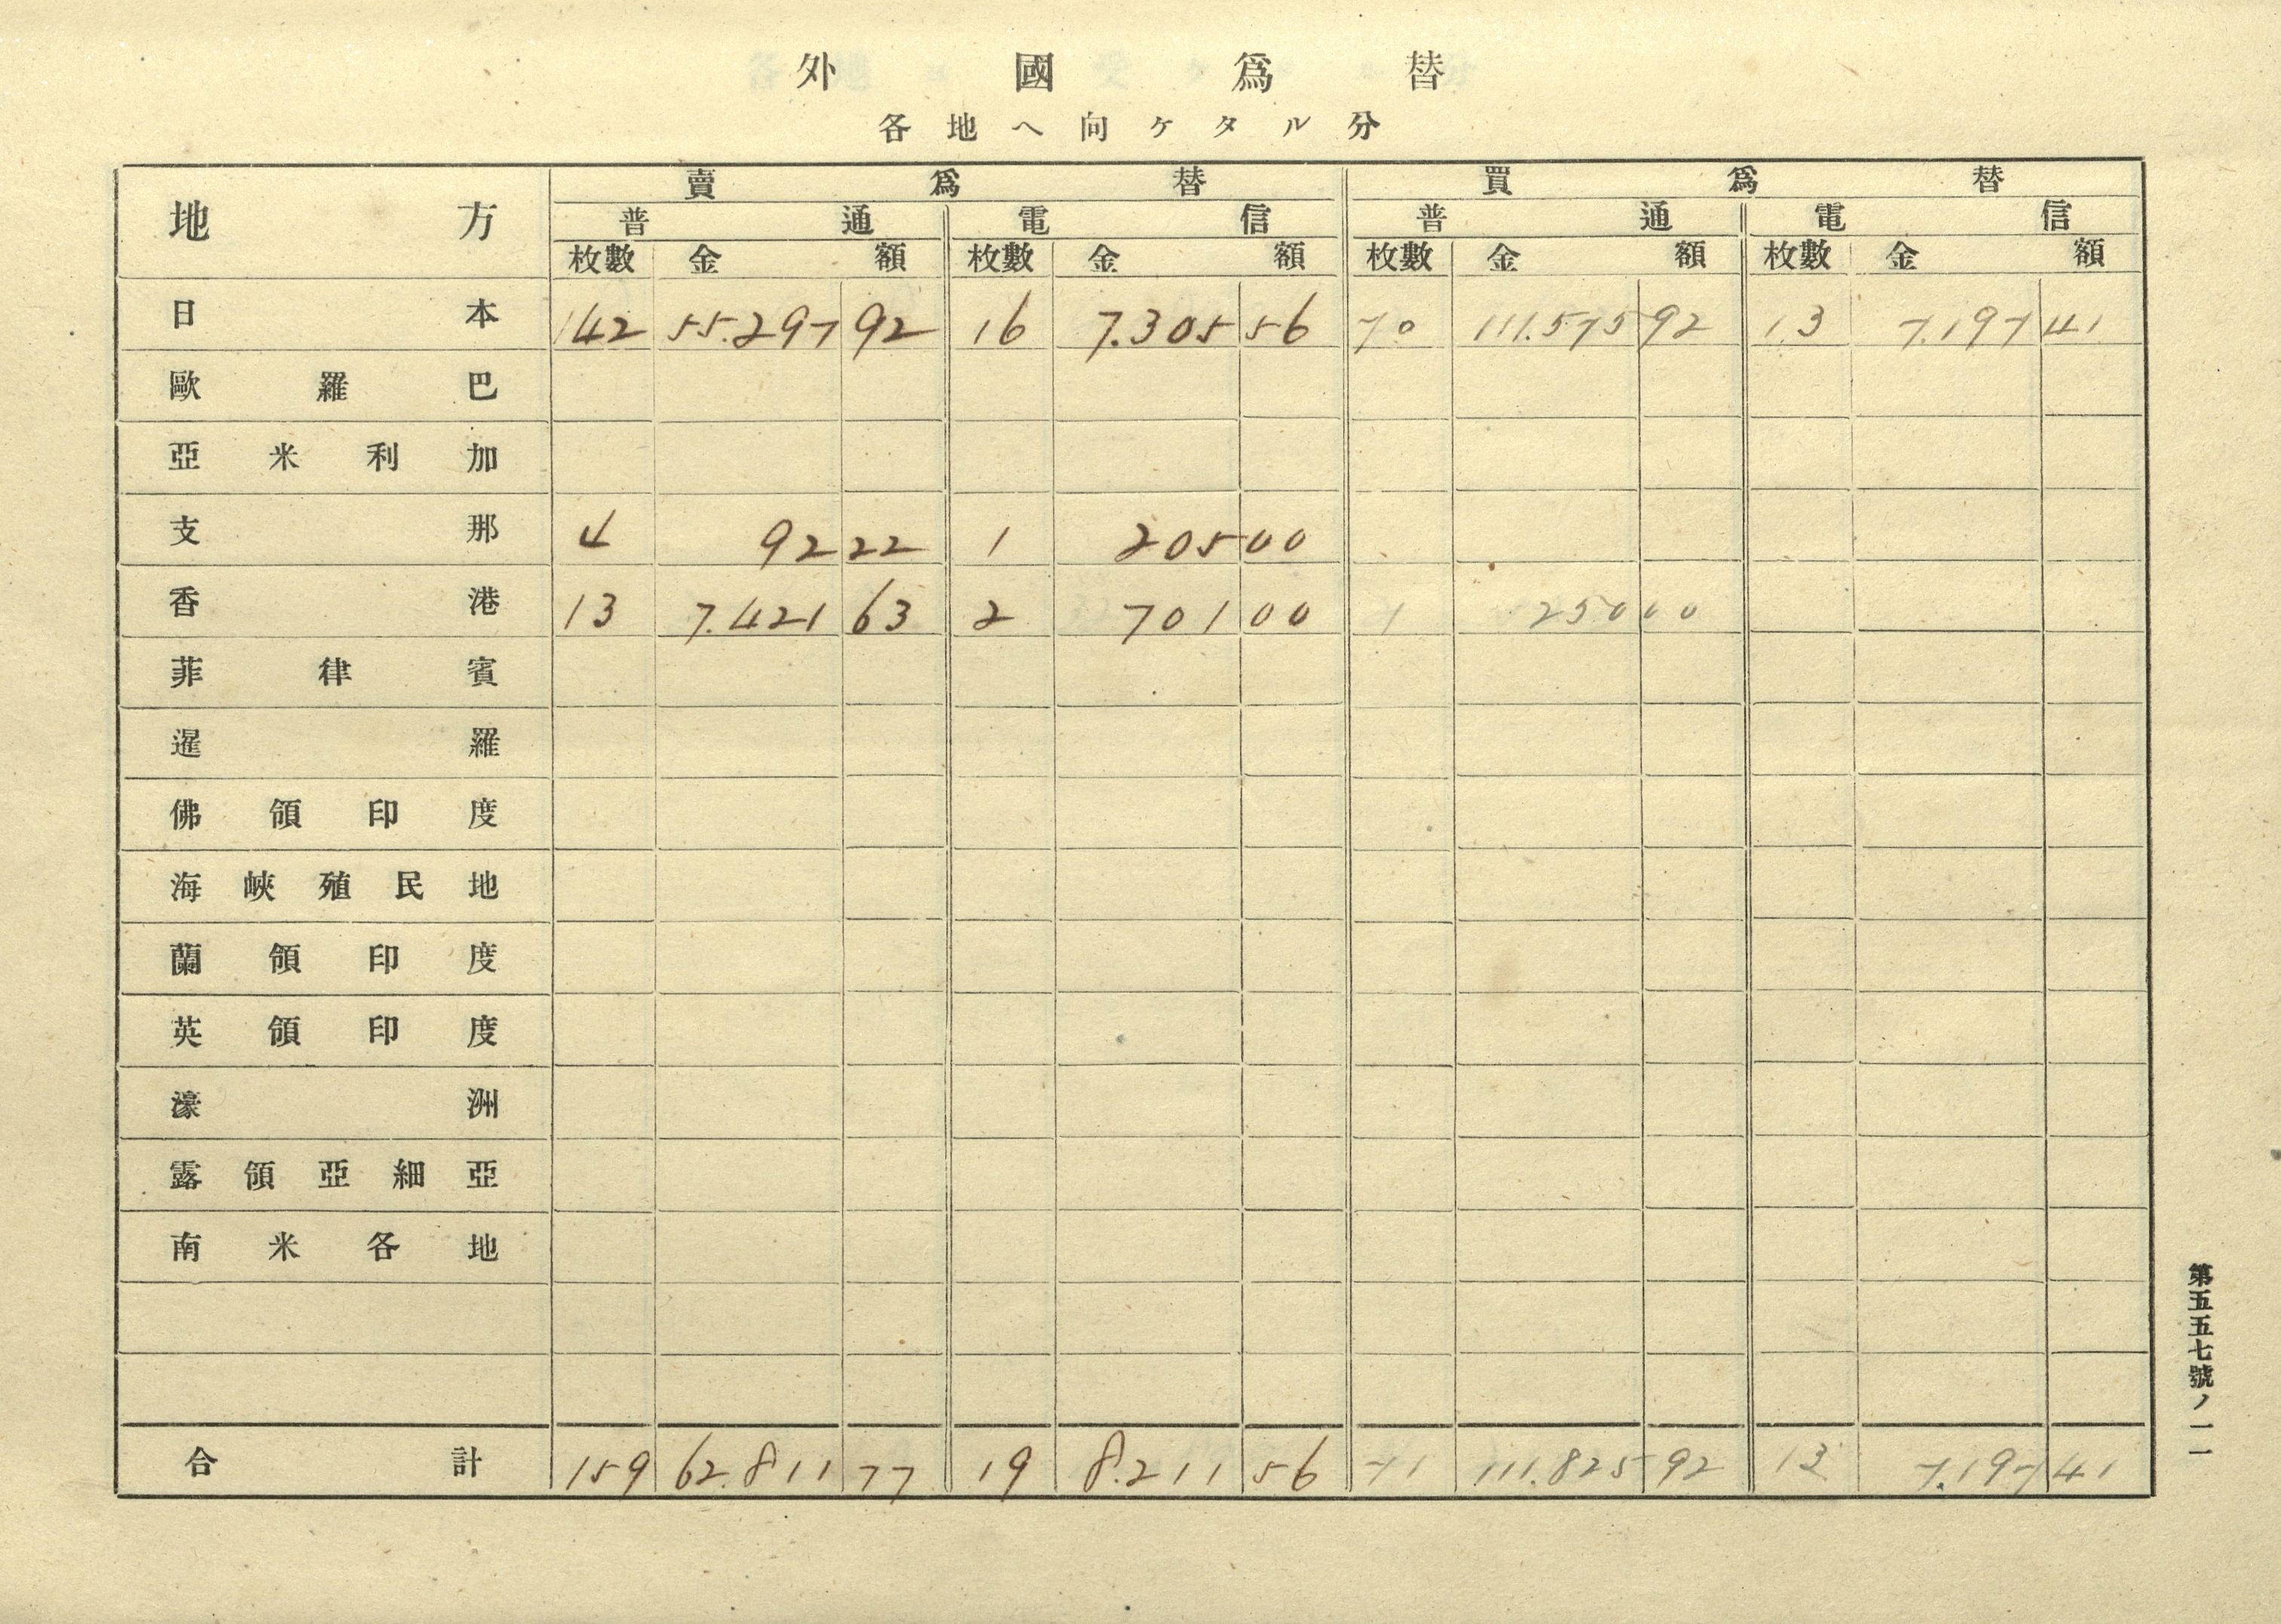 外國爲替
各地へ向ケタル分
地方 賣爲替 買爲替
普通 電信 普通 電信
枚數 金額 枚數 金額 枚數 金額 枚數 金額
日本 142 55.297 92 16 7.305 56 70 111.575 92 13 7.197 41
歐羅巴
亞米利加
支那 4 92 22 1 205 00
香港 13 7.421 63 2 701 00 1 250 00
菲律賓
暹羅
佛領印度
海峽殖民地
蘭領印度
英領印度
濠洲
露領亞細亞
南米各地
合計 159 62.811 77 19 8.211 56 71 111.825 92 13 7.197 41
第五五七號ノ一一